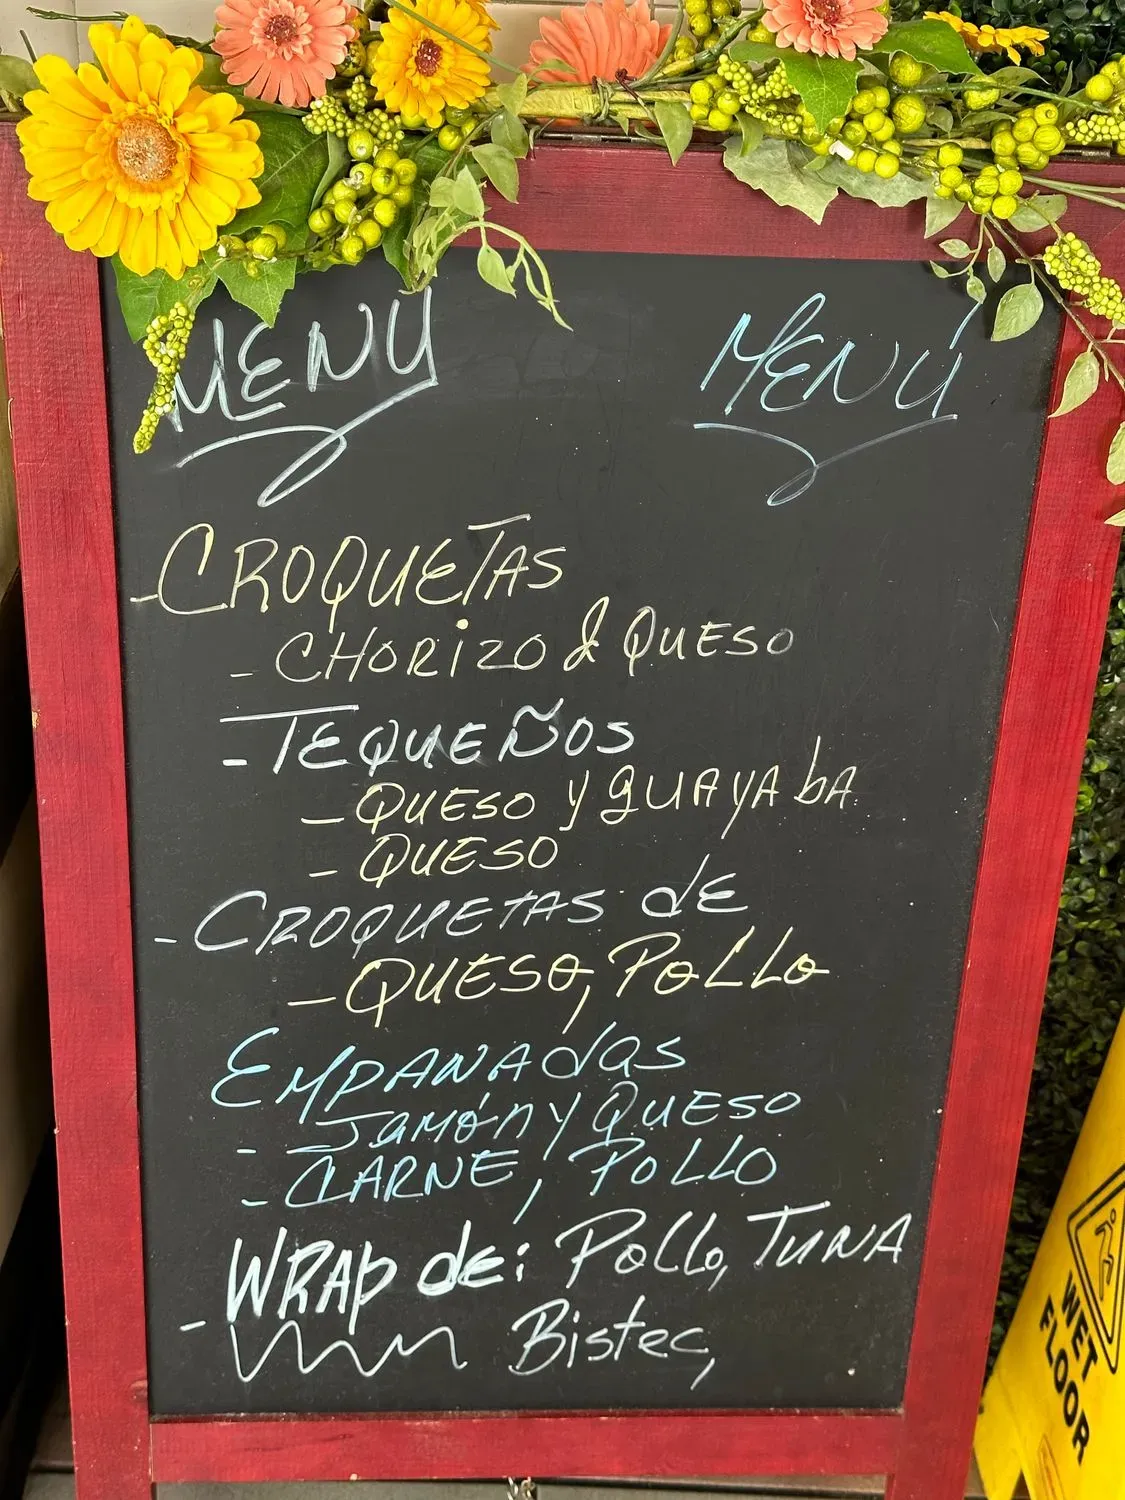 MENU MENÚ
- CROQUETAS
- CHORIZO & QUESO
- TEQUEÑOS
- QUESO Y guAYAbA
- QUESO
- CROQUETAS dE
- QUESO, POLLO
EMPANAdas
- JaMón Y QUESO
- CARNE, POLLO
- WRAP de: Pollo, TUNA
Bistec,
WET
FLOOR